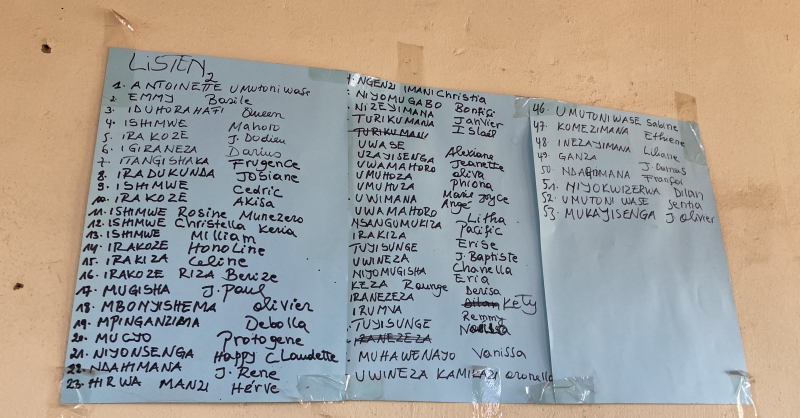 LISTEN 2
1. ANTOINETTE Umutoni wase
2. EMMY Basile
3. IDUHORAHAFI Queen
4. ISHIMWE Mahoro
5. IRAKOZE J. Dodieu
6. IGIRANEZA Darius
7. ITANGISHAKA Frugence
8. IRADUKUNDA Josiane
9. ISHIMWE Cedric
10. IRAKOZE Akisa
11. ISHIMWE Rosine Munezero
12. ISHIMWE Christella Keria
13. ISHIMWE Milliam
14. IRAKOZE Honoline
15. IRAKIZA Celine
16. IRAKOZE RIZA Benize
17. MUGISHA J. Paul
18. MBONYISHEMA olivier
19. MPINGANZIMA Debolla
20. MUCYO Protogene
21. NIYONSENGA Happy Claudette
22. NDAHIMANA J. Rene
23. HIRWA MANZI Hérve
NGENZI IMANI Christia
NIYOMUGABO Bonfils
NIZEYIMANA Janvier
TURIKUMANA Islael
TURIKUMANI
UWASE Alexiane
UZAYISENGA Jeanette
UWAMAHORO oliva
UMUHOZA Phiona
UMUHUZA Marie Joyce
UWIMANA Ange
UWAMAHORO Litha
NSANGUMUKIZA Pacific
IRAKIZA Erise
TUYISUNGE J. Baptiste
UWINEZA Chanella
NIYOMUGISHA Eria
KEZA Rounge Derisa
IRANEZEZA Dilan Kety
IRUMVA Remmy
TUYISUNGE
IRANEZEZA
MUHAWENAYO Vanissa
UWINEZA KAMIKAZI
46. UMUTONI WASE Sabine
47. KOMEZIMANA Ethiene
48. INEZAYIMANA Liliane
49. GANZA J. Damas
50. NDAGIMANA Françoi
51. NIYOKWIZERWA Dilan
52. UMUTONI WASE Sentia
53. MUKAYISENGA J olivier